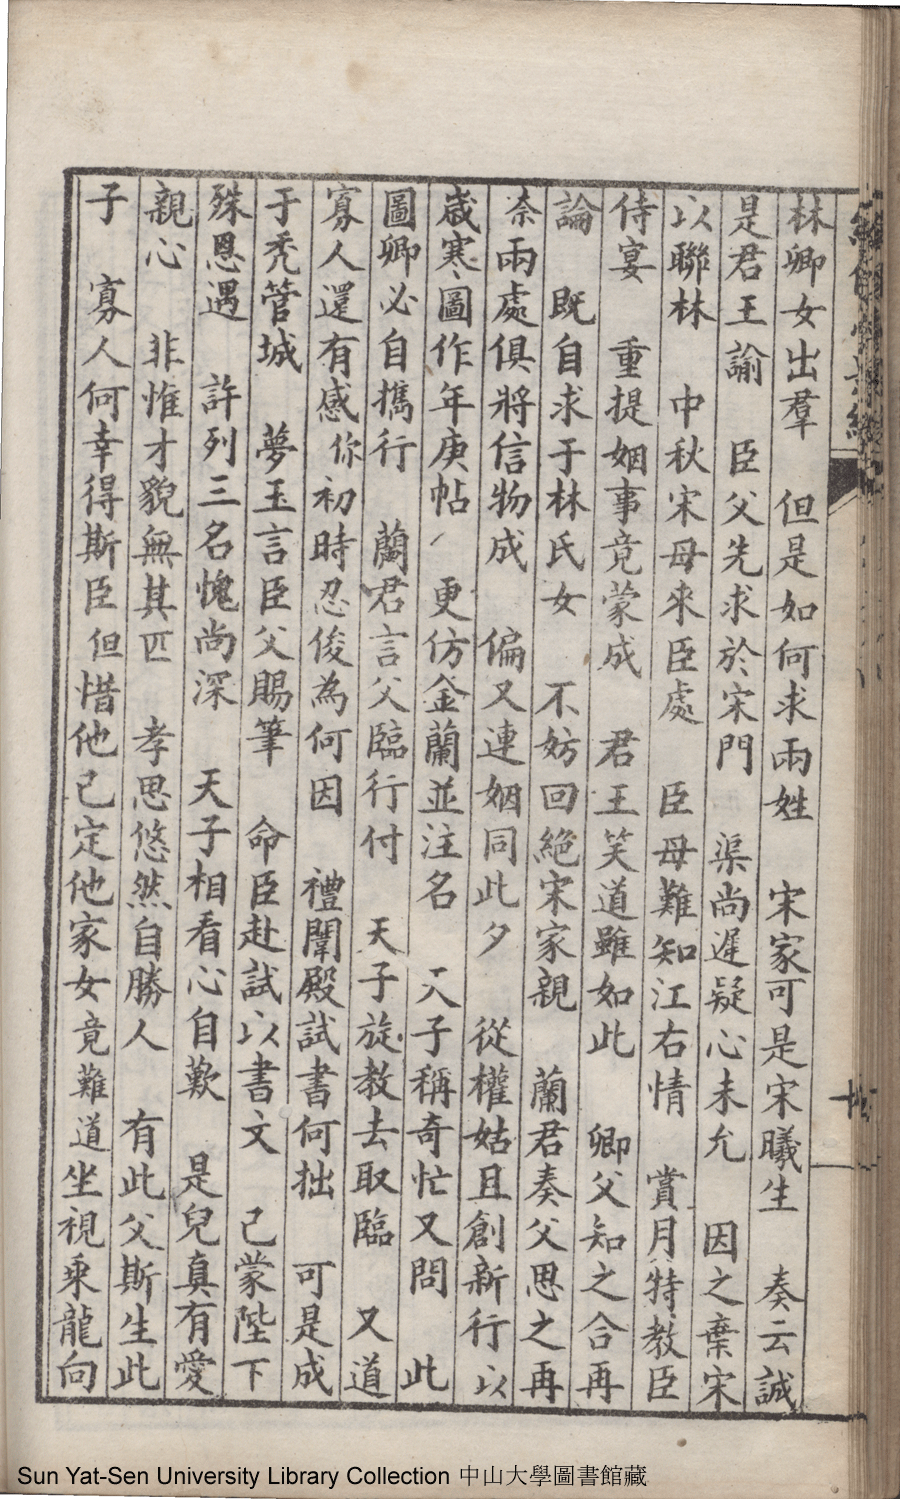 林卿女出羣　但是如何求兩姓　宋家可是宋曦生　奏云誠
是君王諭　臣父先求於宋門　渠尚遲疑心未允　因之棄宋
以聯林　中秋宋母來臣處　臣母難知江右情　賞月特教臣
侍宴　重提姻事竟蒙成　君王笑道雖如此　卿父知之合再
論　既自求于林氏女　不妨回絶宋家親　蘭君奏父思之再
柰兩處俱將信物成　偏又連姻同此夕　從權姑且創新行以
歲寒圖作年庚帖　更仿金蘭並注名　天子稱奇忙又問　此
圖卿必自攜行　蘭君言父臨行付　天子旋教去取臨　又道
寡人還有感　你初時忍俊為何因　禮闈殿試書何拙　可是成
于禿管城　夢玉言臣父賜筆　命臣赴試以書文　己蒙陛下
殊恩遇　許列三名愧尚深　天子相看心自歎　是兒真有愛
親心　非惟才貌無其匹　孝思悠然自勝人　有此父斯生此
子　寡人何幸得斯臣　但惜他己定他家女竟難道坐視乘龍向
Sun Yat-Sen University Library Collection 中山大學圖書館藏